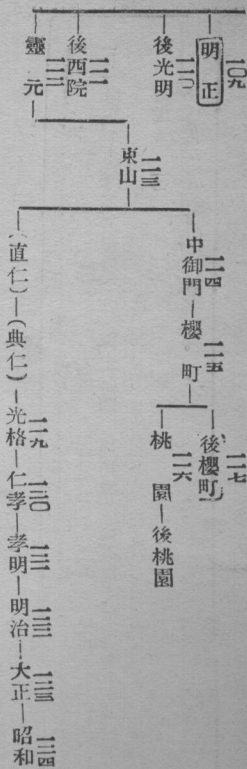 一〇九
明正
一一〇
後光明
一一一
後西院
一一二
靈元
一一三
東山
一一四
中御門
一一五
櫻町
一一七
後櫻町
一一六
桃園
後桃園
(直仁)
(典仁)
一一九
光格
一二〇
仁孝
一二一
孝明
一二二
明治
一二三
大正
一二四
昭和